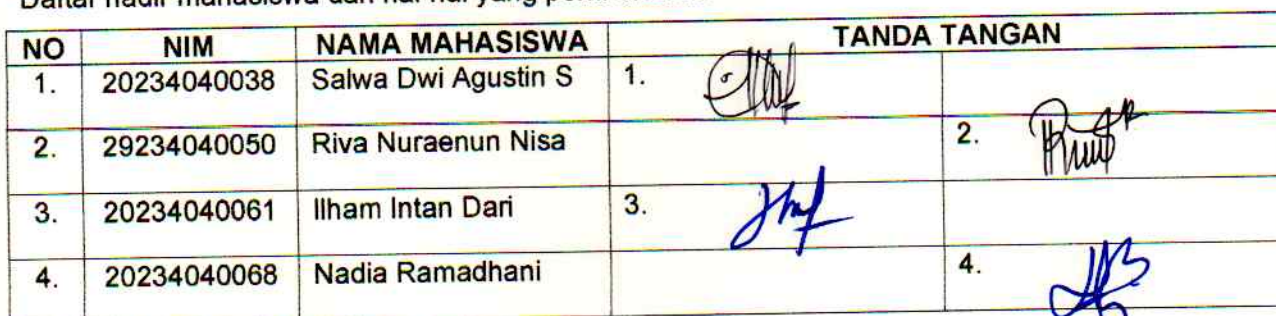 Daftar hadir mahasiswa dan hal-hal yang
NO NIM NAMA MAHASISWA TANDA TANGAN
1. 20234040038 Salwa Dwi Agustin S 1.
2. 29234040050 Riva Nuraenun Nisa 2.
3. 20234040061 Ilham Intan Dari 3.
4. 20234040068 Nadia Ramadhani 4.